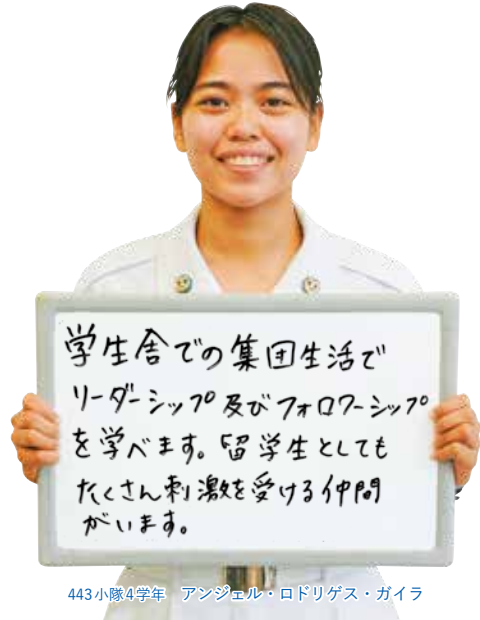 学生舎での集団生活で
リーダーシップ及びフォロワーシップ
を学べます。留学生としても
たくさん刺激を受ける仲間
がいます。
443小隊4学年 アンジェル・ロドリゲス・ガイラ